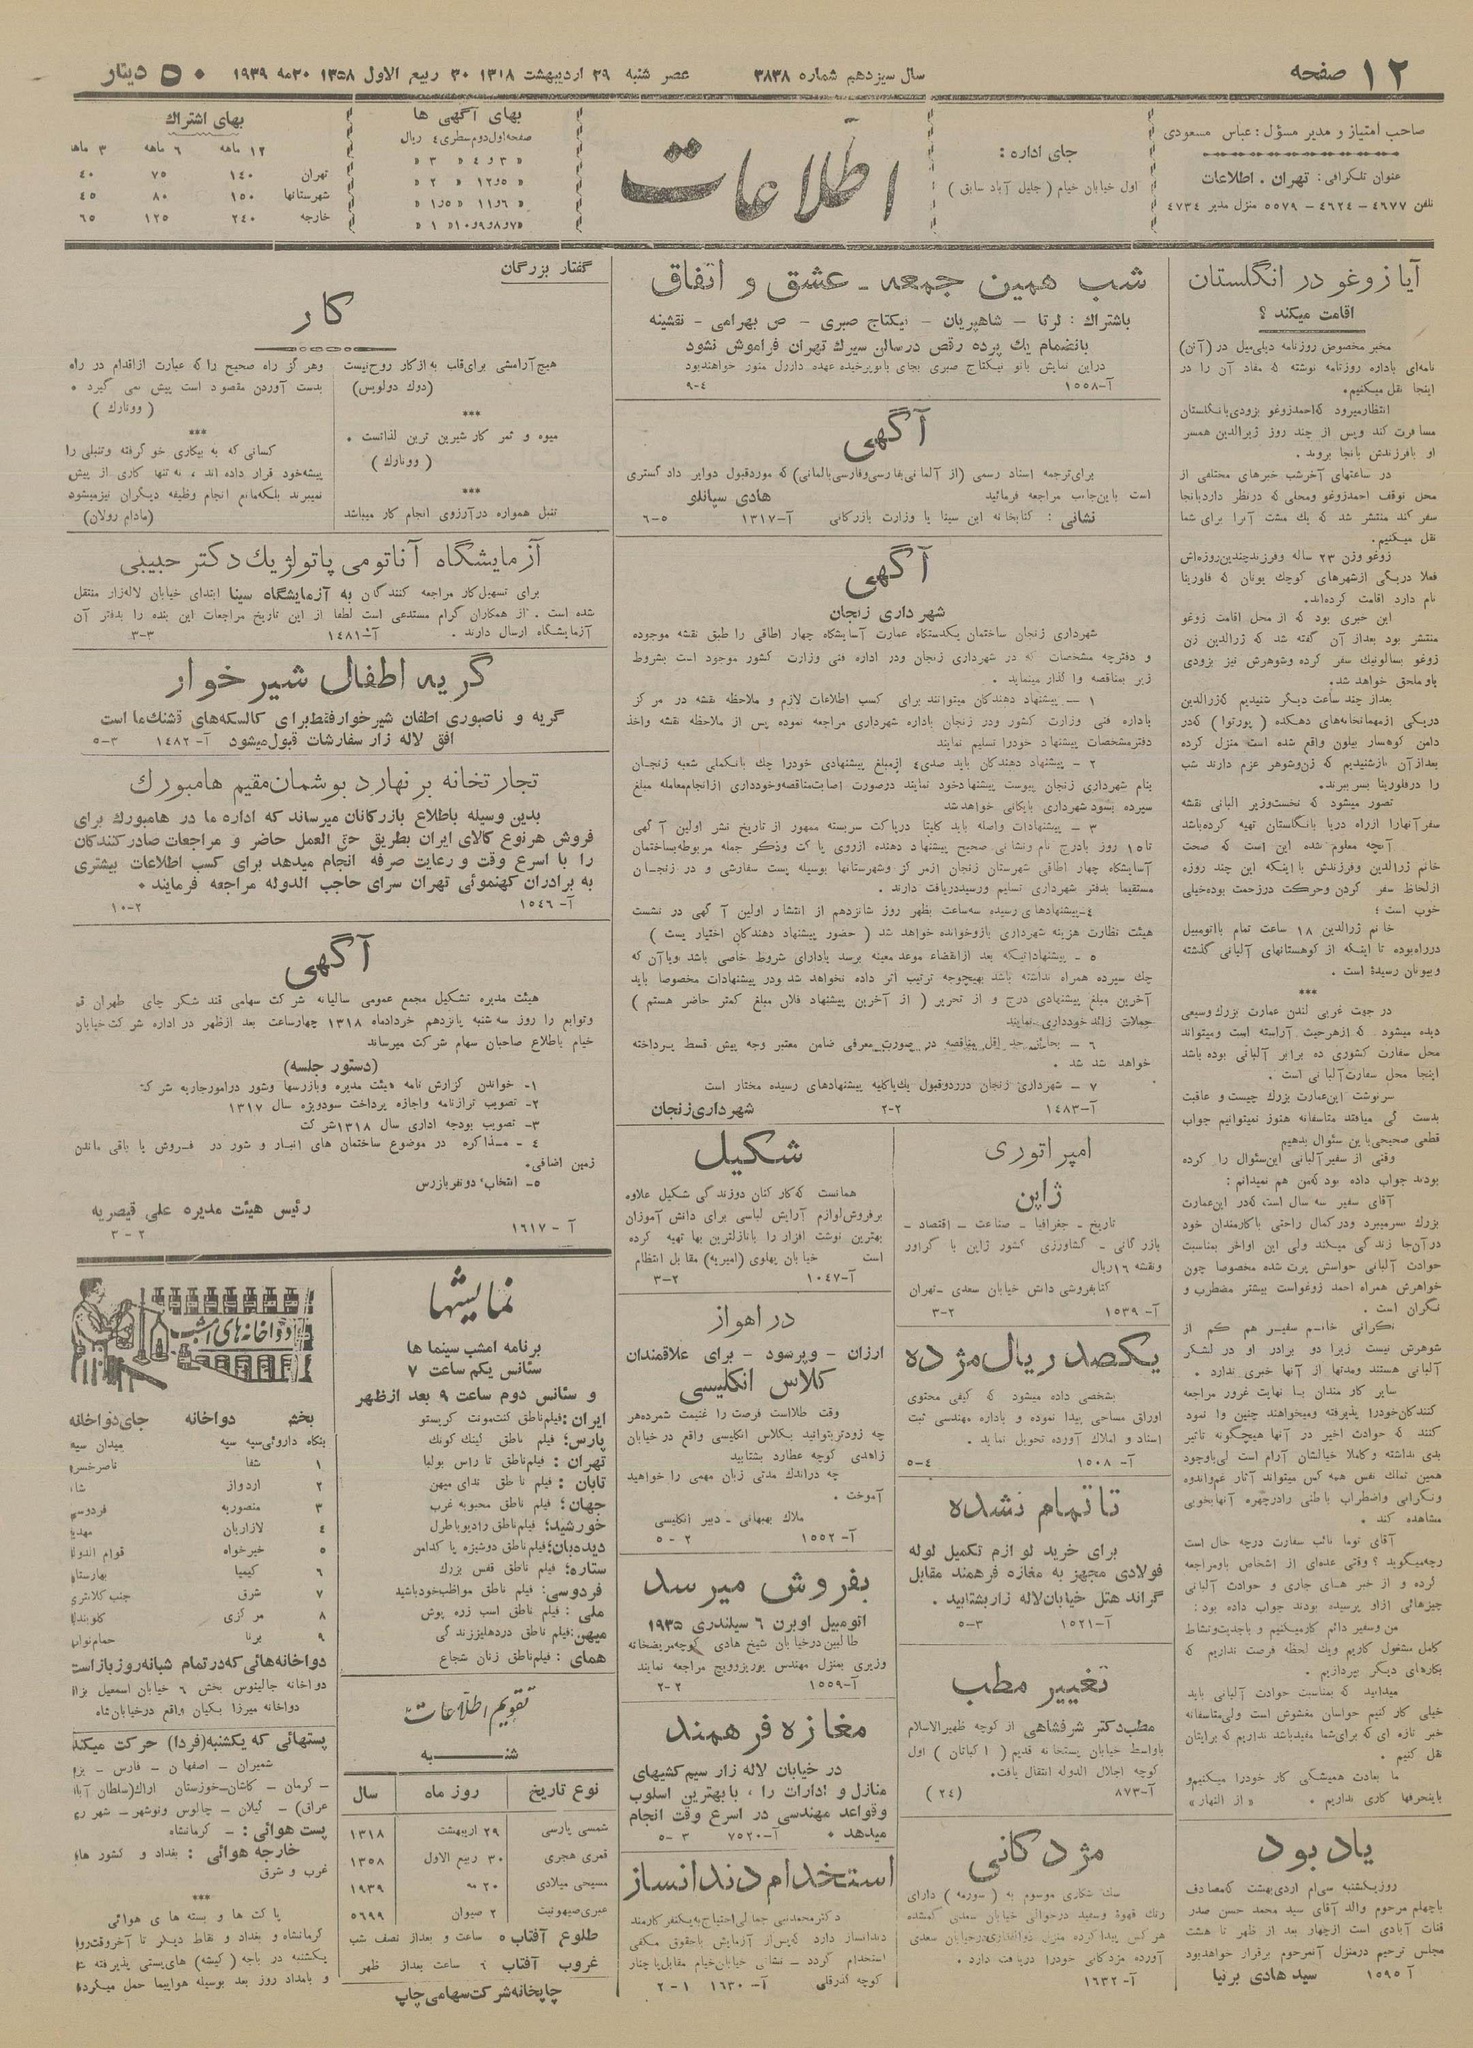 ۱۲ صفحه
سال سیزدهم شماره ۳۸۳۸
عصر شنبه ۲۹ اردیبهشت ۱۳۱۸ ۳۰ ربیع الاول ۱۳۵۸ ۲۰ مه ۱۹۳۹
۵۰ دینار
صاحب امتیاز و مدیر مسؤل : عباس مسعودی
عنوان تلگرافی : تهران . اطلاعات
تلفن ۴۶۷۷ – ۴۶۲۴ – ۵۵۷۹ منزل مدیر ۴۷۳۴
جای اداره :
اول خیابان خیام ( جلیل آباد سابق )
اطلاعات
بهای آگهی ها
صفحه اول دوم سطری ۴ ریال
بهای اشتراك
۱۲ ماهه ۶ ماهه ۳ ماهه
تهران ۱۴۰ ۷۵ ۴۰
شهرستانها ۱۵۰ ۸۰ ۴۵
خارجه ۲۴۰ ۱۲۵ ۶۵
آیا زوغو در انگلستان
اقامت میکند ؟
مخبر مخصوص روزنامه دیلی میل در (آتن)
نامه‌ای باداره روزنامه نوشته که مفاد آن را در
اینجا نقل میکنیم.
انتظار میرود که احمد زوغو بزودی بانگلستان
مسافرت کند و پس از چند روز ژیرالدین همسر
او بافرزندش بانجا بروند .
در ساعتهای آخر شب خبرهای مختلفی از
محل توقف احمد زوغو و محلی که در نظر دارد بانجا
سفر کند منتشر شد که یك مشت آنرا برای شما
نقل میکنیم.
زوغو وزن ۲۳ ساله و فرزند چندین روزه‌اش
فعلا در یکی از شهرهای کوچك یونان که فلورینا
نام دارد اقامت کرده‌اند.
این خبری بود که از محل اقامت زوغو
منتشر بود بعد از آن گفته شد که ژرالدین زن
زوغو بسالونیك سفر کرده و شوهرش نیز بزودی
باو ملحق خواهد شد.
بعد از چند ساعت دیگر شنیدیم که ژرالدین
در یکی از مهمانخانه‌های دهکده ( پورتوا ) که در
دامن کوهسار بیلون واقع شده است منزل کرده
بعد از آن باز شنیدیم که زن و شوهر عزم دارند شب
را در فلورینا بسر ببرند.
تصور میشود که نخست وزیر البانی نقشه
سفر آنهارا از راه دریا بانگلستان تهیه کرده باشد
آنچه معلوم شده این است که صحت
خانم ژرالدین و فرزندش با اینکه این چند روزه
از لحاظ سفر کردن و حرکت در زحمت بوده خیلی
خوب است ؛
خانم ژرالدین ۱۸ ساعت تمام با اتومبیل
در راه بوده تا اینکه از کوهستانهای آلبانی گذشته
و بیونان رسیده است .
***
در جهت غربی لندن عمارت بزرك وسیعی
دیده میشود که از هر حیث آراسته است و میتواند
محل سفارت کشوری ده برابر آلبانی بوده باشد
اینجا محل سفارت آلبانی است .
سرنوشت این عمارت بزرك چیست و عاقبت
بدست کی میافتد متاسفانه هنوز نمیتوانیم جواب
قطعی صحیحی باین سئوال بدهیم
وقتی از سفیر آلبانی این سئوال را کرده
بودند جواب داده بود که من هم نمیدانم :
آقای سفیر سه سال است که در این عمارت
بزرك سر میبرد و در کمال راحتی با کارمندان خود
در آن جا زندگی میکند ولی این اواخر بمناسبت
حوادث آلبانی حواسش پرت شده مخصوصا چون
خواهرش همراه احمد زوغو است بیشتر مضطرب و
نگران است .
نگرانی خانم سفیر هم کم از
شوهرش نیست زیرا دو برادر او در لشگر
آلبانی هستند و مدتها از آنها خبری ندارد .
سایر کارمندان با نهایت غرور مراجعه
کنندگان خودرا پذیرفته و میخواهند چنین وا نمود
کنند که حوادث اخیر در آنها هیچگونه تاثیر
بدی نداشته و کاملا خیالشان آرام است لی باوجود
همین تملك نفس همه کس میتواند آثار غم و اندوه
و نگرانی و اضطراب باطنی را در چهره آنها بخوبی
مشاهده کند .
آقای توما نائب سفارت در چه حال است
و چه میگوید ؟ وقتی عده‌ای از اشخاص باو مراجعه
کرده و از خبر های جاری و حوادث آلبانی
چیزهائی از او پرسیده بودند جواب داده بود :
من و سفیر دائم کار میکنیم و با جدیت و نشاط
کامل مشغول کاریم ویك لحظه فرصت نداریم که
بکارهای دیگر بپردازیم .
میدانید که بمناسبت حوادث آلبانی باید
خیلی کار کنیم حواسمان مغشوش است ولی متاسفانه
خبر تازه ای که برای شما مفید باشد نداریم که برایتان
نقل کنیم .
ما بعادت همیشگی کار خودرا میکنیم و
باینحرفها کاری نداریم . « از النهار »
یادبود
روز یکشنبه سی‌ام اردی بهشت که مصادف
باچهلم مرحوم والد آقای سید محمد حسن صدر
قنات آبادی است از چهار بعد از ظهر تا هشت
مجلس ترحیم در منزل آنمرحوم برقرار خواهد بود
آ ۱۵۹۵ سید هادی برنیا
شب همین جمعه ـ عشق و اتفاق
باشتراك : لرتا – شاهپریان – نیکتاج صبری – ص بهرامی – نقشینه
بانضمام یك پرده رقص در سالن سیرك تهران فراموش نشود
در این نمایش بانو نیکتاج صبری بجای بانو پرخیده عهده دار رل منور خواهند بود
آ–۱۵۵۸ ۴–۹
آگهی
برای ترجمه اسناد رسمی (از آلمانی بفارسی و فارسی بالمانی) که مورد قبول دوایر دادگستری
است باین جانب مراجعه فرمائید هادی سپانلو
نشانی : کتابخانه ابن سینا یا وزارت بازرگانی آ–۱۳۱۷ ۵–۶
آگهی
شهرداری زنجان
شهرداری زنجان ساختمان یکدستگاه عمارت آسایشگاه چهار اطاقی را طبق نقشه موجوده
و دفترچه مشخصات که در شهرداری زنجان و در اداره فنی وزارت کشور موجود است بشروط
زیر بمناقصه واگذار مینماید .
۱ — پیشنهاد دهندگان میتوانند برای کسب اطلاعات لازم و ملاحظه نقشه در مرکز
باداره فنی وزارت کشور و در زنجان باداره شهرداری مراجعه نموده پس از ملاحظه نقشه واخذ
دفتر مشخصات پیشنهاد خودرا تسلیم نمایند
۲ – پیشنهاد دهندگان باید صدی۴ از مبلغ پیشنهادی خودرا چك بانکملی شعبه زنجان
بنام شهرداری زنجان پیوست پیشنهاد خود نمایند در صورت اصابت مناقصه و خودداری از انجام معامله مبلغ
سپرده بسود شهرداری بایگانی خواهد شد
۳ – پیشنهادات واصله باید کلیتا در پاکت سربسته ممهور از تاریخ نشر اولین آگهی
تا۱۵ روز بادرج نام و نشانی صحیح پیشنهاد دهنده از روی پاکت و ذکر جمله مربوطه بساختمان
آسایشگاه چهار اطاقی شهرستان زنجان از مرکز و شهرستانها بوسیله پست سفارشی و در زنجان
مستقیما بدفتر شهرداری تسلیم و رسید دریافت دارند .
۴–پیشنهادهای رسیده سه ساعت بظهر روز شانزدهم از انتشار اولین آگهی در نشست
هیئت نظارت هزینه شهرداری باز و خوانده خواهد شد ( حضور پیشنهاد دهندگان اختیار یست )
۵ – پیشنهاداتیکه بعد از انقضاء موعد معینه برسد یا دارای شروط خاصی باشد و یا آن که
چك سپرده همراه نداشته باشد بهیچوجه ترتیب اثر داده نخواهد شد و در پیشنهادات مخصوصا باید
آخرین مبلغ پیشنهادی درج و از تحریر ( از آخرین پیشنهاد فلان مبلغ کمتر حاضر هستم )
جملات زائد خودداری نمایند
خواهد شد .
۷ – شهرداری زنجان در رد و قبول یك یا کلیه پیشنهادهای رسیده مختار است
آ–۱۴۸۳ ۲–۲ شهرداری زنجان
امپراتوری
ژاپن
تاریخ – جغرافیا – صناعت – اقتصاد –
بازرگانی – کشاورزی کشور ژاپن با گراور
و نقشه ۱۶ ریال
کتابفروشی دانش خیابان سعدی –تهران
آ– ۱۵۳۹ ۲–۳
یکصد ریال مژده
بشخصی داده میشود که کیفی محتوی
اوراق مساحی پیدا نموده و باداره مهندسی ثبت
اسناد و املاك آورده تحویل نماید .
آ– ۱۵۰۸ ۴–۵
تا تمام نشده
برای خرید لوازم تکمیل لوله
فولادی مجهز به مغازه فرهمند مقابل
گراند هتل خیابان لاله زار بشتابید .
آ–۱۵۲۱ ۳–۵
تغییر مطب
مطب دکتر شرفشاهی از کوچه ظهیر الاسلام
باواسط خیابان پستخانه قدیم ( اکباتان ) اول
کوچه اجلال الدوله انتقال یافت.
آ–۸۷۳ (۲۴)
مژدگانی
سك شکاری موسوم به ( سورمه ) دارای
رنك قهوه وسفید در حوالی خیابان سعدی گمشده
آورده مژدگانی خودرا دریافت دارد .
آ– ۱۶۳۲
شکیل
همانست که کارکنان دوزندگی شکیل علاوه
بر فروش لوازم آرایش لباسی برای دانش آموزان
بهترین نوشت افزار را با نازلترین بها تهیه کرده
است خیابان پهلوی (امیریه) مقابل انتظام
آ–۱۰۴۷ ۲–۳
در اهواز
ارزان – و پرسود – برای علاقمندان
کلاس انگلیسی
وقت طلااست فرصت را غنیمت شمرده هر
چه زودتر بتوانید بکلاس انگلیسی واقع در خیابان
زاهدی کوچه عطارد بشتابید
چه در اندك مدتی زبان مهمی را خواهید
آموخت .
ملاك بهبهانی – دبیر انگلیسی
آ– ۱۵۵۲ ۲ – ۵
بفروش میرسد
اتومبیل اوبرن ۶ سیلندری ۱۹۳۵
طالبین در خیابان شیخ هادی کوچه مریضخانه
وزیری بمنزل مهندس یوریزوویچ مراجعه نمایند
آ–۱۵۵۹ ۲–۲
مغازه فرهمند
در خیابان لاله زار سیم کشیهای
منازل و ادارات را ، با بهترین اسلوب
وقواعد مهندسی در اسرع وقت انجام
میدهد . آ–۷۵۲۰ ۳ –۵
استخدام دندانساز
دندانساز دارد که پس از آزمایش باحقوق مکفی
استخدام گردد – نشانی خیابان خیام مقابل پاچنار
کوچه گذرقلی آ– ۱۶۳۰ ۱–۲
گفتار بزرگان
کار
هیچ آرامشی برای قلب به از کار روح نیست
(دوك دولویس)
***
میوه و ثمر کار شیرین ترین لذاتست .
( وونارك )
***
تنبل همواره در آرزوی انجام کار میباشد
وهرگز راه صحیح را که عبارت از اقدام در راه
بدست آوردن مقصود است پیش نمی گیرد .
( وونارك )
***
کسانی که به بیکاری خو گرفته و تنبلی را
پیشه خود قرار داده اند ، نه تنها کاری از پیش
نمیبرند بلکه مانع انجام وظیفه دیگران نیز میشود
(مادام رولان)
آزمایشگاه آناتومی پاتولژیك دکتر حبیبی
برای تسهیل کار مراجعه کنندگان به آزمایشگاه سینا ابتدای خیابان لاله‌زار منتقل
شده است . از همکاران گرام مستدعی است لطفا از این تاریخ مراجعات این بنده را بدفتر آن
آزمایشگاه ارسال دارند . آ–۱۴۸۱ ۳–۳
گریه اطفال شیرخوار
گریه و ناصبوری اطفان شیر خوار فقط برای کالسکه‌های قشنك ما است
افق لاله زار سفارشات قبول میشود آ– ۱۴۸۲ ۳–۵
تجارتخانه برنهارد بوشمان مقیم هامبورك
بدین وسیله باطلاع بازرگانان میرساند که اداره ما در هامبورك برای
فروش هر نوع کالای ایران بطریق حق العمل حاضر و مراجعات صادر کنندگان
را با اسرع وقت و رعایت صرفه انجام میدهد برای کسب اطلاعات بیشتری
به برادران کهنموئی تهران سرای حاجب الدوله مراجعه فرمایند .
آ– ۱۵۴۶ ۲–۱۰
آگهی
هیئت مدیره تشکیل مجمع عمومی سالیانه شرکت سهامی قند شکر چای طهران قم
وتوابع را روز سه شنبه پانزدهم خردادماه ۱۳۱۸ چهار ساعت بعد از ظهر در اداره شرکت خیابان
خیام باطلاع صاحبان سهام شرکت میرساند
(دستور جلسه)
۱– خواندن گزارش نامه هیئت مدیره و بازرسها وشور در امور جاریه شرکت
۲– تصویب ترازنامه واجازه پرداخت سود ویژه سال ۱۳۱۷
۳– تصویب بودجه اداری سال ۱۳۱۸ شرکت
۴ – مذاکره در موضوع ساختمان های انبار و شور در فروش یا باقی ماندن
زمین اضافی.
۵– انتخاب دو نفر بازرس
رئیس هیئت مدیره علی قیصریه
آ – ۱۶۱۷ ۲ – ۳
نمایشها
برنامه امشب سینما ها
سئانس یکم ساعت ۷
و سئانس دوم ساعت ۹ بعد از ظهر
ایران : فیلم ناطق کنت مونت کریستو
پارس : فیلم ناطق کینك کونك
تهران : فیلم ناطق تاراس بولبا
تابان : فیلم ناطق ندای میهن
جهان : فیلم ناطق محبوبه غرب
خورشید : فیلم ناطق رادیو پاطرل
دیده‌بان : فیلم ناطق دوشیزه یا کدامن
ستاره : فیلم ناطق قفس بزرك
فردوسی : فیلم ناطق مواظب خود باشید
ملی : فیلم ناطق اسب زره پوش
میهن : فیلم ناطق در دهلیز زندگی
همای : فیلم ناطق زنان شجاع
تقویم اطلاعات
شنبه
نوع تاریخ روز ماه سال
شمسی پارسی ۲۹ اردیبهشت ۱۳۱۸
قمری هجری ۳۰ ربیع الاول ۱۳۵۸
مسیحی میلادی ۲۰ مه ۱۹۳۹
عبری صیهونیت ۲ صیوان ۵۶۹۹
طلوع آفتاب ۵ ساعت و بعد از نصف شب
غروب آفتاب ۶ ساعت بعد از ظهر
چاپخانه شرکت سهامی چاپ
دواخانه‌های امشب
بخش دواخانه جای دواخانه
بنگاه داروئی سپه سپه میدان سپه
۱ شفا ناصر خسرو
۲ اردواز
۳ منصوریه فردوسی
۴ لازاریان
۵ خیرخواه قوام الدوله
۶ کیمیا بهارستان
۷ شرق جنب کلانتری
۸ مرکزی
۹ برنا حمام نواب
دواخانه‌هائی که در تمام شبانه روز باز است
دواخانه جالینوس بخش ۶ خیابان اسمعیل بزاز
دواخانه میرزا یکیان واقع در خیابان شاه
پستهائی که یکشنبه (فردا) حرکت میکند
شمیران – اصفهان – فارس – یزد
– کرمان – کاشان– خوزستان اراك(سلطان آباد
عراق) – گیلان – چالوس و نوشهر – شهر ری
پست هوائی : – کرمانشاه
خارجه هوائی : بغداد و کشور های
غرب و شرق
***
پاکت ها و بسته های هوائی
کرمانشاه و بغداد و نقاط دیگر تا آخر وقت روز
یکشنبه در باجه (گیشه) های پستی پذیرفته
و بامداد روز بعد بوسیله هواپیما حمل میگردد